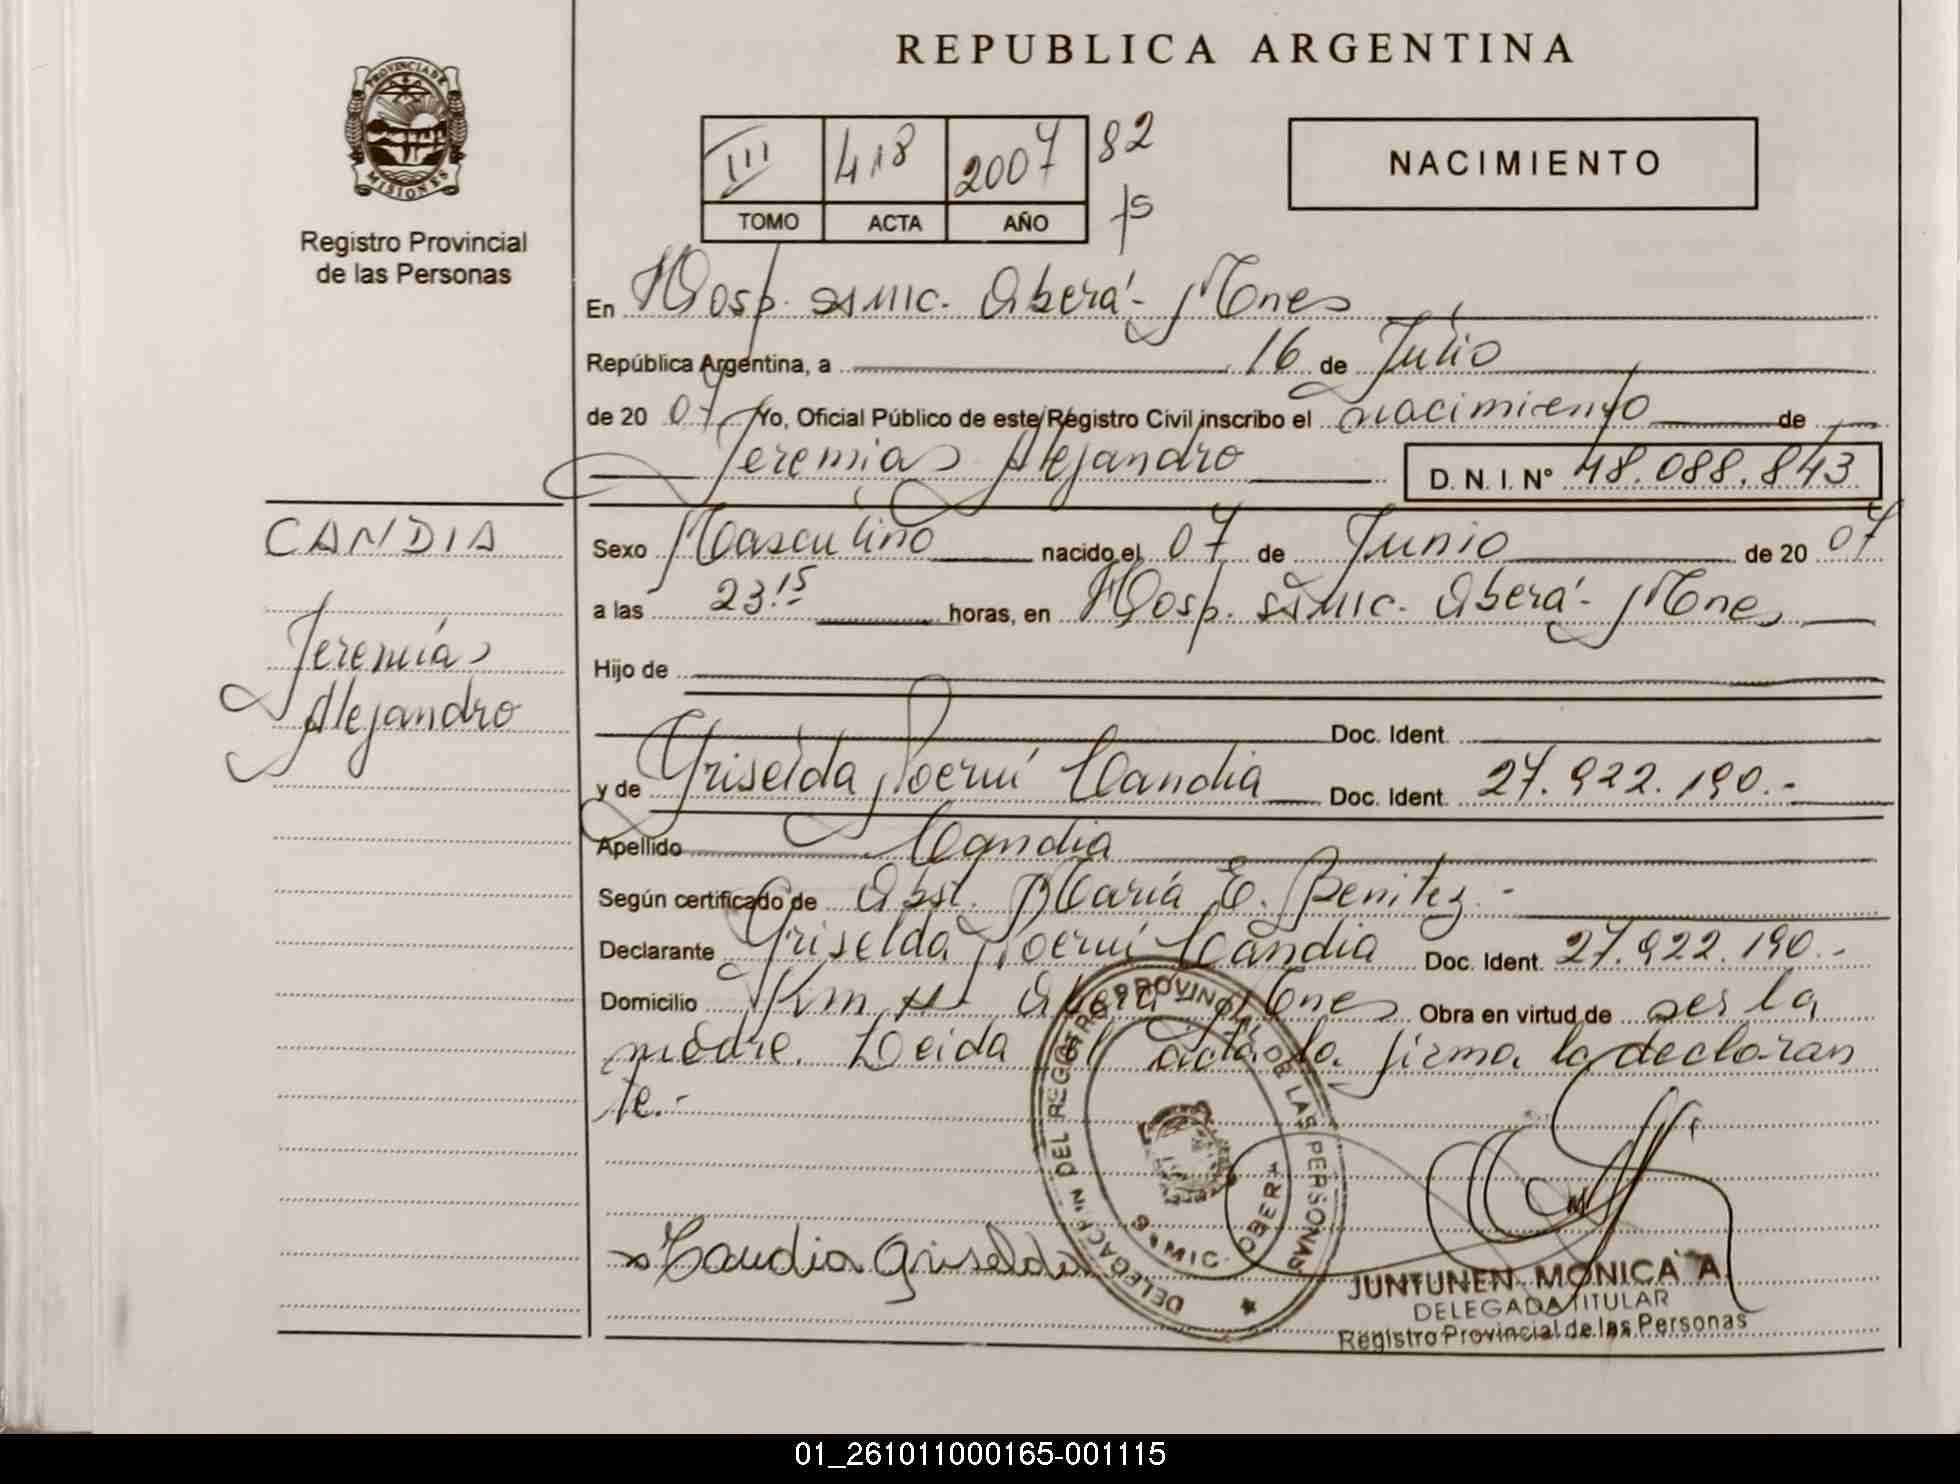 PROVINCIA DE
MISIONES
Registro Provincial
de las Personas
REPUBLICA ARGENTINA
III 418 2007 82
TOMO ACTA AÑO
NACIMIENTO
En Hosp. SAMIC. Oberá - Mnes
República Argentina, a 16 de Julio
de 20 07 Yo, Oficial Público de este Registro Civil inscribo el nacimiento de
Jeremias Alejandro D. N. I. N° 48.088.843
CANDIA
Jeremías
Alejandro
Sexo Masculino nacido el 07 de Junio de 20 07
a las 23.15 horas, en Hosp. SAMIC. Oberá - Mnes
Hijo de
Doc. Ident.
y de Griselda Noemí Candia Doc. Ident. 27.922.190.-
Apellido Candia
Según certificado de Obst. María E. Benitez.-
Declarante Griselda Noemí Candia Doc. Ident. 27.922.190.-
Domicilio Km Oberá - Mnes Obra en virtud de ser la
madre. Leida el acta la firma la declaran
te.-
DELEGACIÓN DEL REGISTRO PROVINCIAL DE LAS PERSONAS
SAMIC. OBERÁ
Candia Griselda
JUNTUNEN MONICA A
DELEGADA TITULAR
Registro Provincial de las Personas
01_261011000165-001115